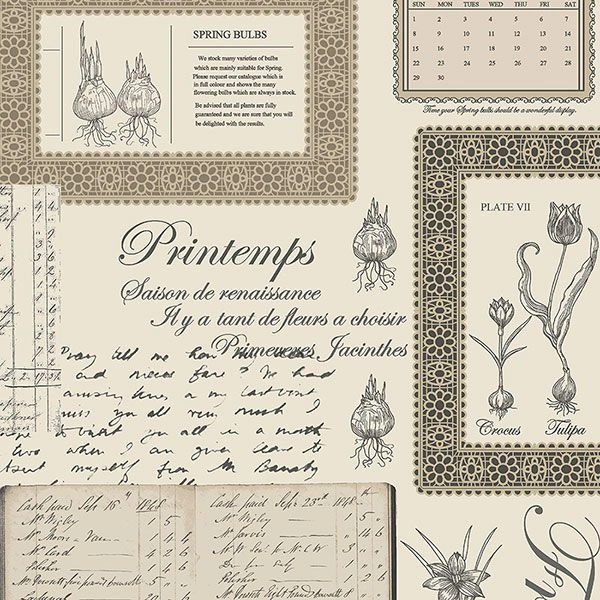 SPRING BULBS
We stock many varieties of bulbs
which are mainly suitable for Spring.
Please request our catalogue which is
in full colour and shows the many
flowering bulbs which are always in stock.
Be advised that all plants are fully
guaranteed and we are sure that you will
be delighted with the results.
SUN MON TUES WED THUR FRI SAT
1 2 3 4 5 6 7
8 9 10 11 12 13 14
15 16 17 18 19 20 21
22 23 24 25 26 27 28
29 30
Time your Spring bulbs should be a wonderful display.
PLATE VII
Crocus Tulipa
Printemps
Saison de renaissance
Il y a tant de fleurs a choisir
Primeveres Jacinthes
pray tell me how
and nieces fare? We had
you all very much I
to visit you all in a month
two when I am given leave to
myself from Mr Barnaby
Cash paid Sept 15th 1848
Mr Wigley 1 5
Mr Moore 1 4 4
Mr Card 4 2
Polisher 1 4 6
Cash paid Sept 23rd 1848
Mr Wigley 1 5
Mr Jarvis 14 6
Polisher 2 6